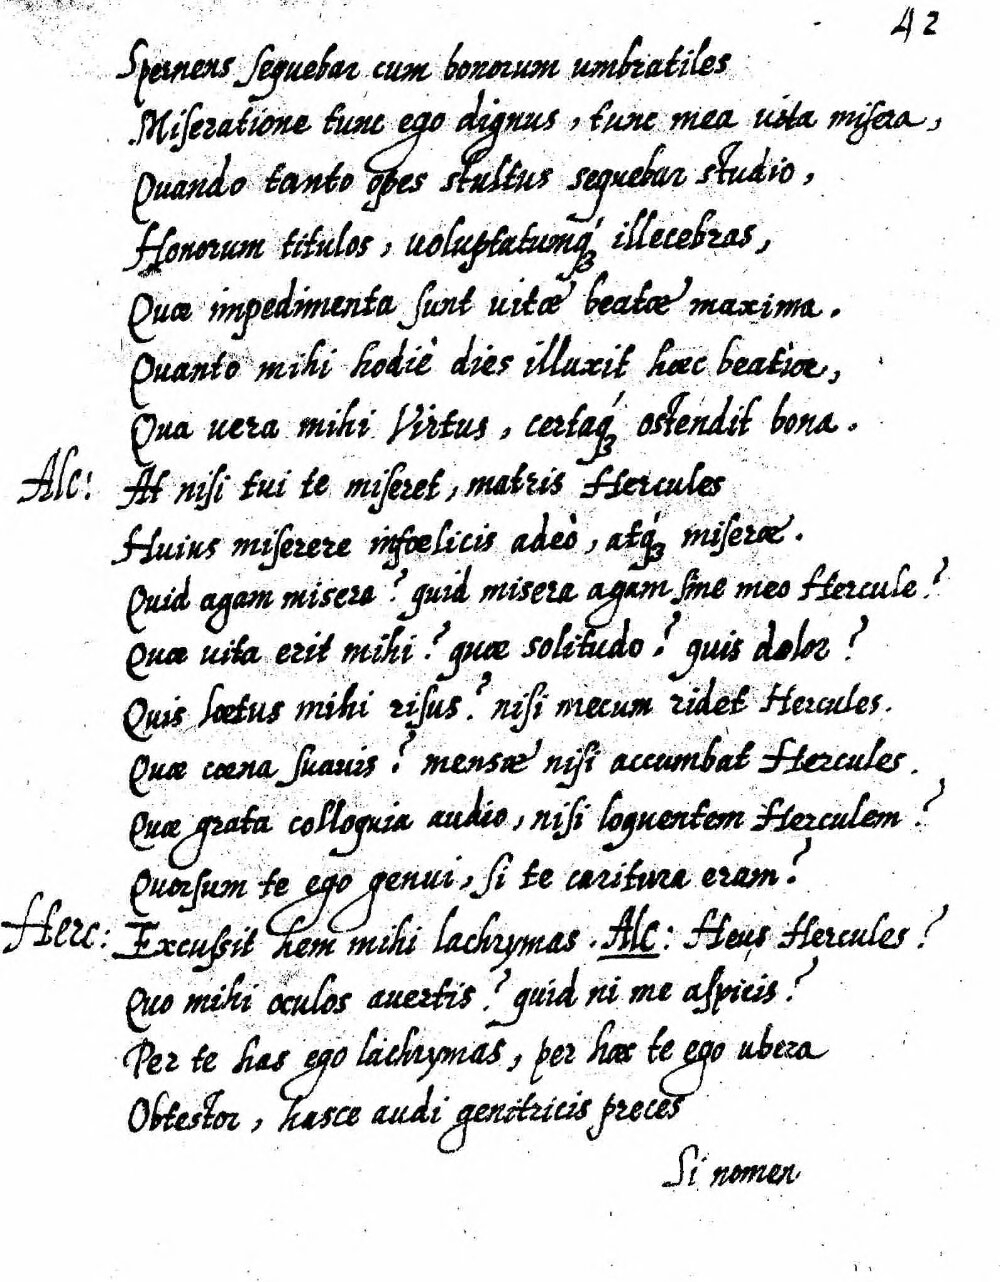 42
Spernens sequebar cum bonorum umbratiles
Miseratione tunc ego dignus, tunc mea vita misera,
Quando tanto opes stultus sequebar studio,
Honorum titulos, uoluptatumq́ꝫ illecebras,
Quæ impedimenta sunt uitæ beatæ maxima.
Quanto mihi hodiè dies illuxit hæc beatior,
Qua uera mihi Virtus, certaq́ꝫ ostendit bona.
Alc: At nisi tui te miseret, matris Hercules
Huius miserere infœlicis adeò, atq́ꝫ miseræ.
Quid agam misera? quid misera agam sine meo Hercule?
Quæ uita erit mihi? quæ solitudo? quis dolor?
Quis lætus mihi risus? nisi mecum ridet Hercules.
Quæ cœna suauis? mensæ nisi accumbat Hercules.
Quæ grata colloquia audio, nisi loquentem Herculem?
Quorsum te ego genui, si te caritura eram?
Herc: Excussit hem mihi lachrymas. Alc: Heus Hercules?
Quo mihi oculos auertis? quid ni me aspicis?
Per te has ego lachrymas, per hæc te ego ubera
Obtestor, hasce audi genitricis preces
Si nomen